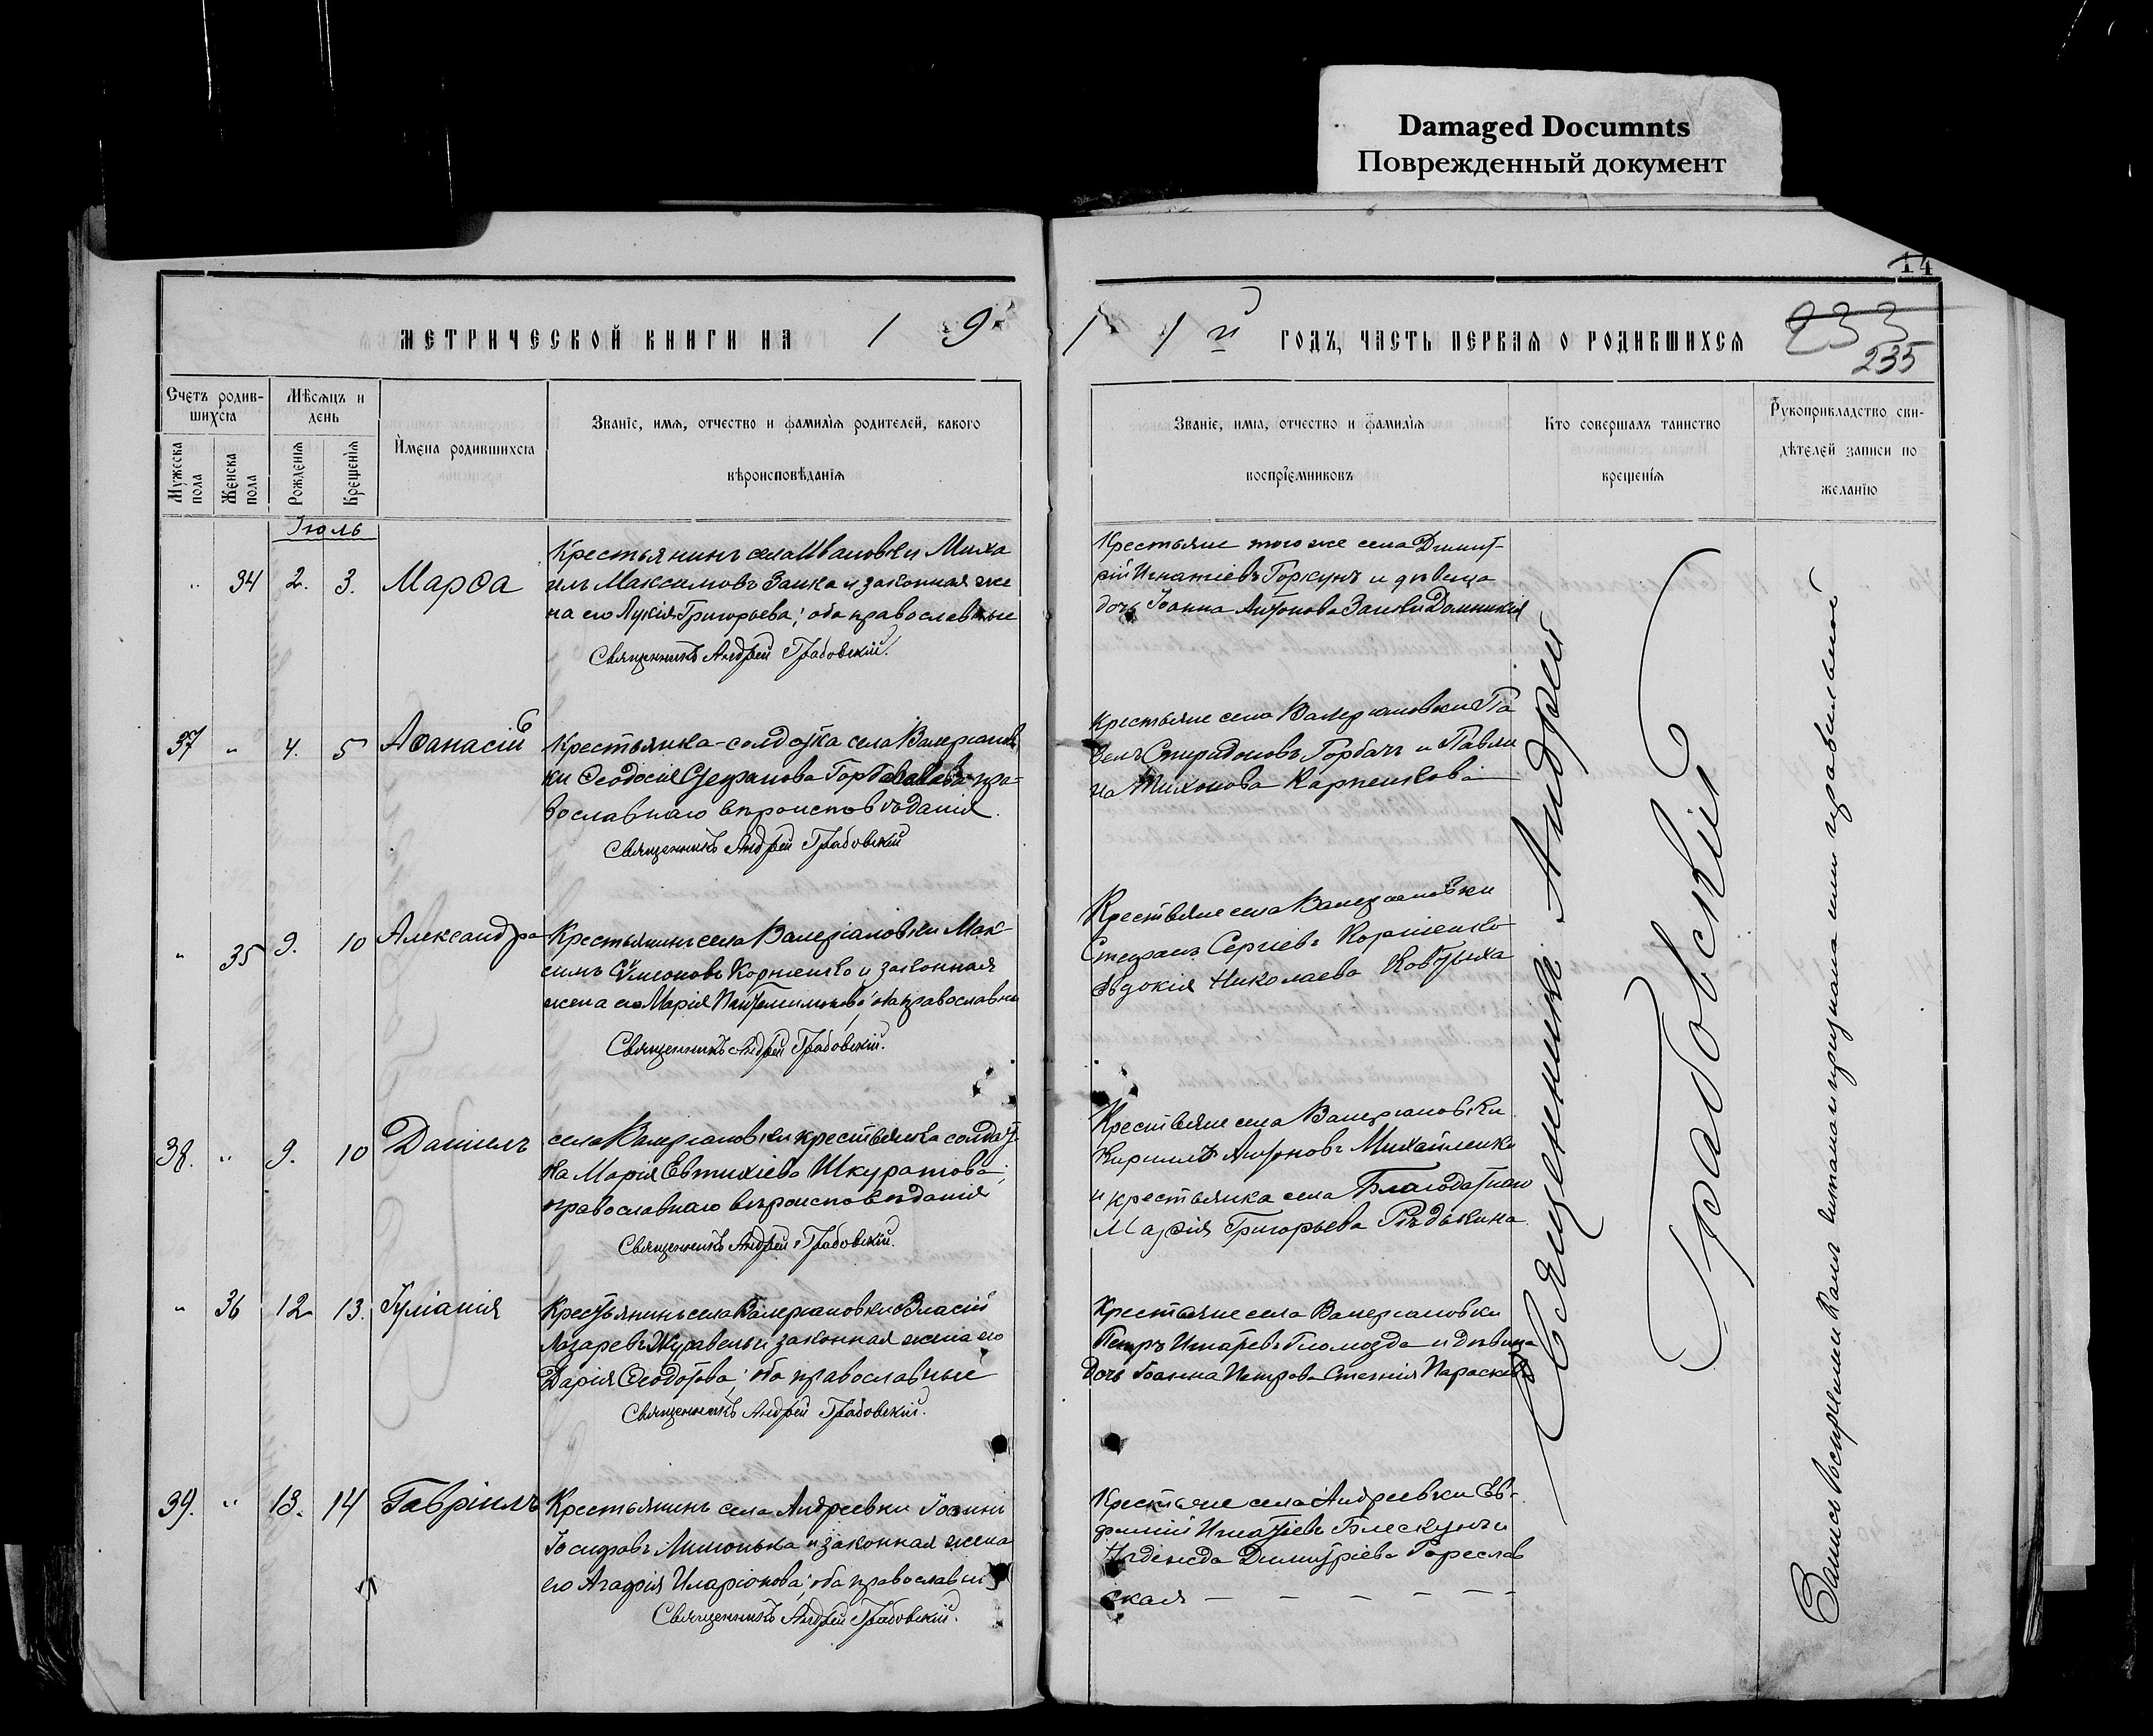 Damaged Documnts
Поврежденный документ
14
МЕТРИЧЕСКОЙ КНИГИ НА 1 9
1 1 й ГОДЪ, ЧАСТЬ ПЕРВАЯ О РОДИВШИХСЯ
233
235
Счетъ родив-
шихсѧ
Мужеска пола
Женска пола
Мѣсѧцъ и
день
Рожденїѧ
Крещенїѧ
Имена родившихсѧ
Званїе, имѧ, отчество и фамилїѧ родителей, какого
вѣроисповѣданїѧ
Званїе, имѧ, отчество и фамилїѧ
воспрїемниковъ
Кто совершалъ таинство
крещенїѧ
Рукоприкладство сви-
дѣтелей записи по
желанїю
Іюль
„ 34 2. 3. Марѳа
Крестьянинъ села Ивановки Миха
илъ Максимовъ Заика и законная же
на его Лукія Григорьева; оба православные
Священникъ Андрей Грабовскій.
Крестьяне того же села Димит-
рій Игнатіевъ Горкунъ и дѣвица
дочь Іоанна Антонова Заики Домникія
37 „ 4. 5 Аѳанасій
Крестьянка-солдатка села Валеріанов
ки Ѳеодосія Стефанова пра-
вославнаго вѣроисповѣданія.
Священникъ Андрей Грабовскій
Крестьяне села Валеріановки Па
велъ Спиридоновъ Горбачъ и Павли
на Тихонова Карпенкова
„ 35 9. 10 Александра
Крестьянинъ села Валеріановки Мак-
симъ Сѵмеоновъ Корніенко и законная
жена его Марія Пантелимонова; оба православны
Священникъ Андрей Грабовскій.
Крестьяне села Валеріановки
Стефанъ Сергіевъ Корніенко
Евдокія Николаева Ковтуна
38. „ 9. 10 Даніилъ
села Валеріановки крестьянка солдат-
ка Марія Евтихіева Шкуратова;
православнаго вѣроисповѣданія
Священникъ Андрей Грабовскій.
Крестьяне села Валеріановки
Кириллъ Антоновъ Михайленко
и крестьянка села Благодатнаго
Марѳія Григорьева Рѣдькина.
„ 36 12 13. Іуліанія
Крестьянинъ села Валеріановки Власій
Лазаревъ Журавель и законная жена его
Дарія Ѳеодотова; оба православные
Священникъ Андрей Грабовскій.
Крестьяне села Валеріановки
Петръ Игнатіевъ и дѣвица
дочь Іоанна Петрова Параскева
39. „ 13. 14 Гавріилъ
Крестьянинъ села Андреевки Іоаннъ
Іосифовъ Лимонька и законная жена
его Агафія Иларіонова; оба православные
Священникъ Андрей Грабовскій.
Крестьяне села Андреевки Ев-
фимій Игнатіевъ Блескунъ и
Надежда Димитріева Гореслав
ская — — — — —
Священникъ Андрей
Грабовскій
Записи воспріемниками читаны и признаны ими правильной